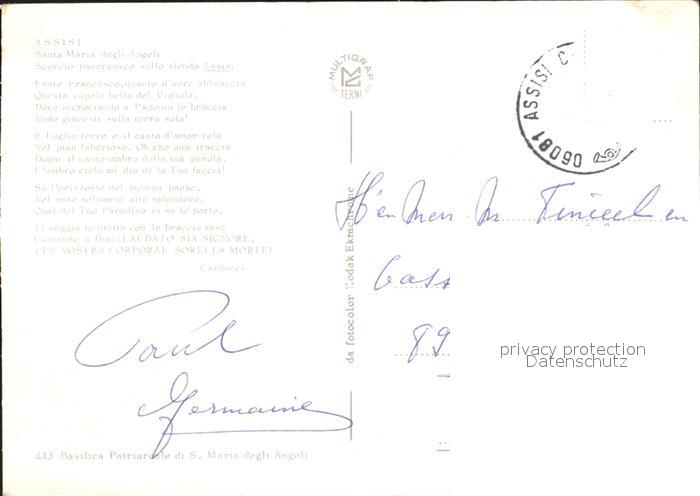 ASSISI
Santa Maria degli Angeli
Scorcio panoramico sullo sfondo Assisi
Frate Francesco, quanto d'aere abbraccia
Questa cupola bella del Vignola,
Dove incrociando a l'agonia le braccia
Nudo giacesti sulla terra sola!
E Luglio ferve e il canto d'amor vola
Nel pian laborioso. Oh che una traccia
Diami il canto umbro della tua parola,
L'umbro cielo mi dia de la Tua faccia!
Su l'orizzonte del montan paese,
Nel mite solitario alto splendore,
Qual del Tuo Paradiso in su le porte,
Ti veggia io dritto con le braccia tese
Cantando a Dio:-LAUDATO SIA SIGNORE,
PER NOSTRA CORPORAL SORELLA MORTE!
Carducci
Paul
Germaine
413 Basilica Patriarcale di S. Maria degli Angeli
MULTIGRAF
TERNI
da fotocolor Kodak Ektachrome
06081 ASSISI C
89
privacy protection
Datenschutz